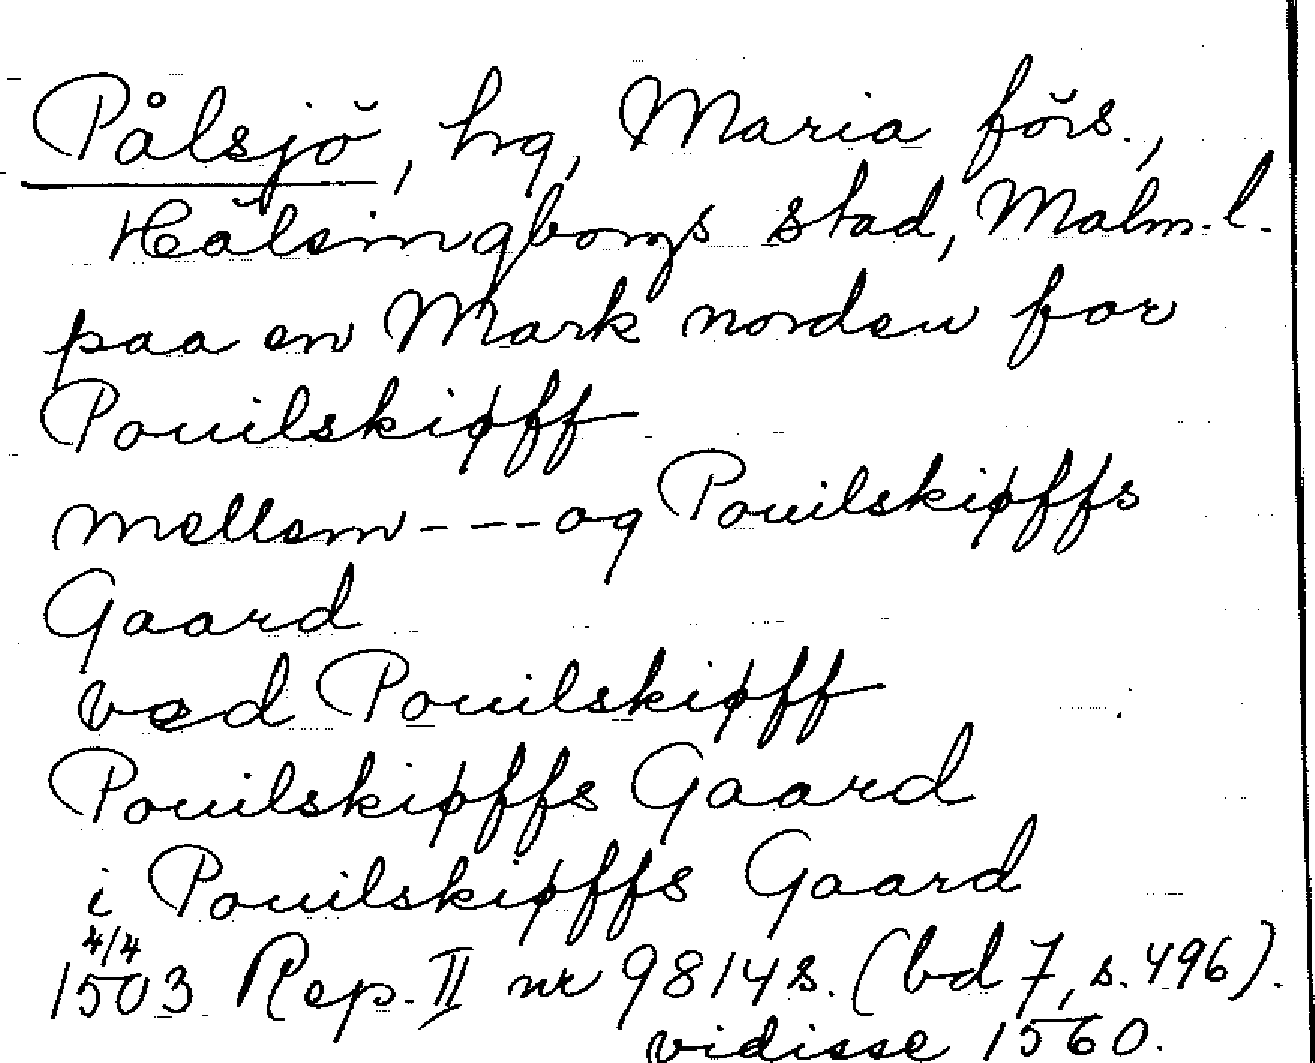 Pålsjö, hg, Maria förs.,
Hälsingborgs stad, Malm. l.
paa en Mark norden for
Pouilskiøff
mellem --- og Pouilskiøffs
Gaard
ved Pouilskiøff
Pouilskiøffs Gaard
i Pouilskiøffs Gaard
4/4
1503 Rep. II nr 9814 s. (bd 7, s. 496).
vidisse 1560.